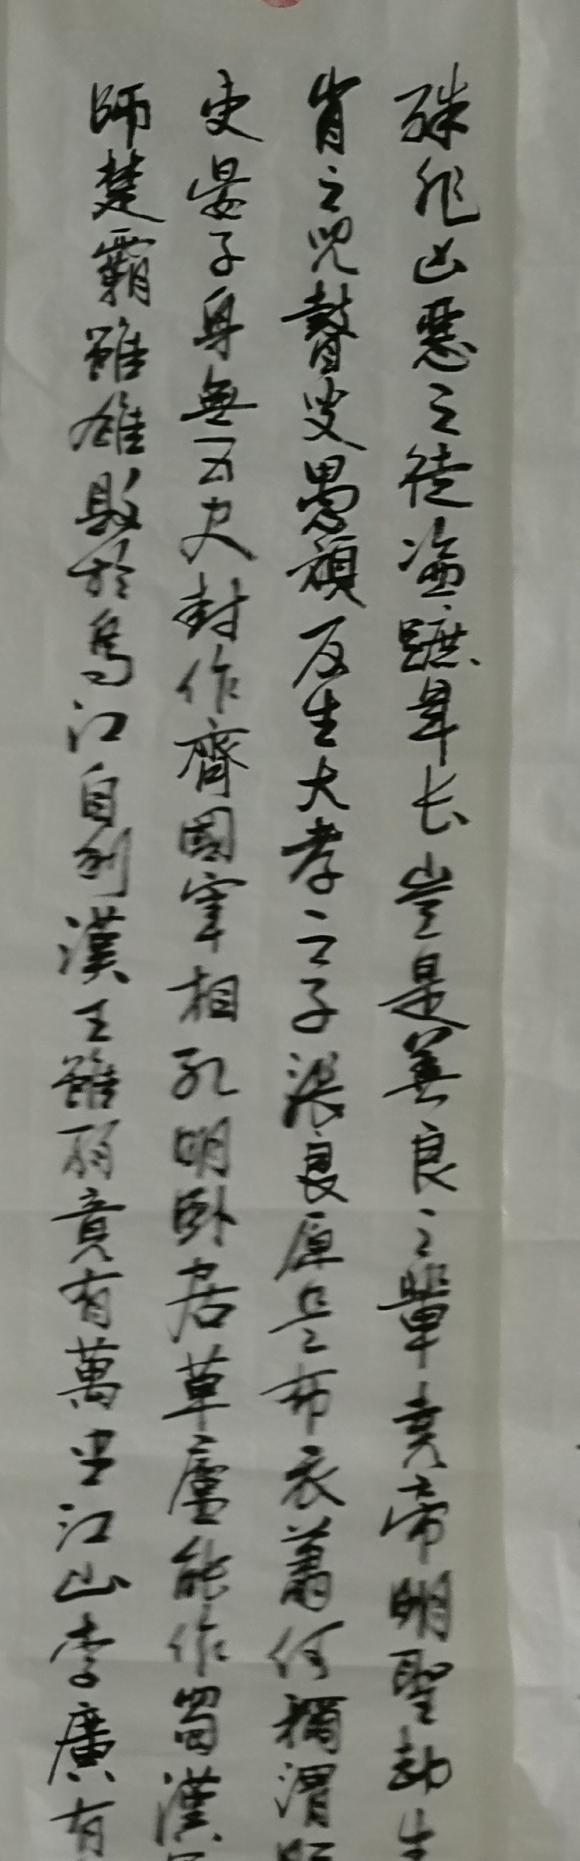 殊非凶惡之徒盗蹠年长豈是善良之輩堯帝明聖却生
肖之児瞽叟愚頑反生大孝之子張良原是布衣蕭何稱謂
史晏子身無五尺封作齊國宰相孔明卧居草廬能作蜀漢
師楚霸雖雄敗於烏江自刎漢王雖弱竟有萬里江山李廣有